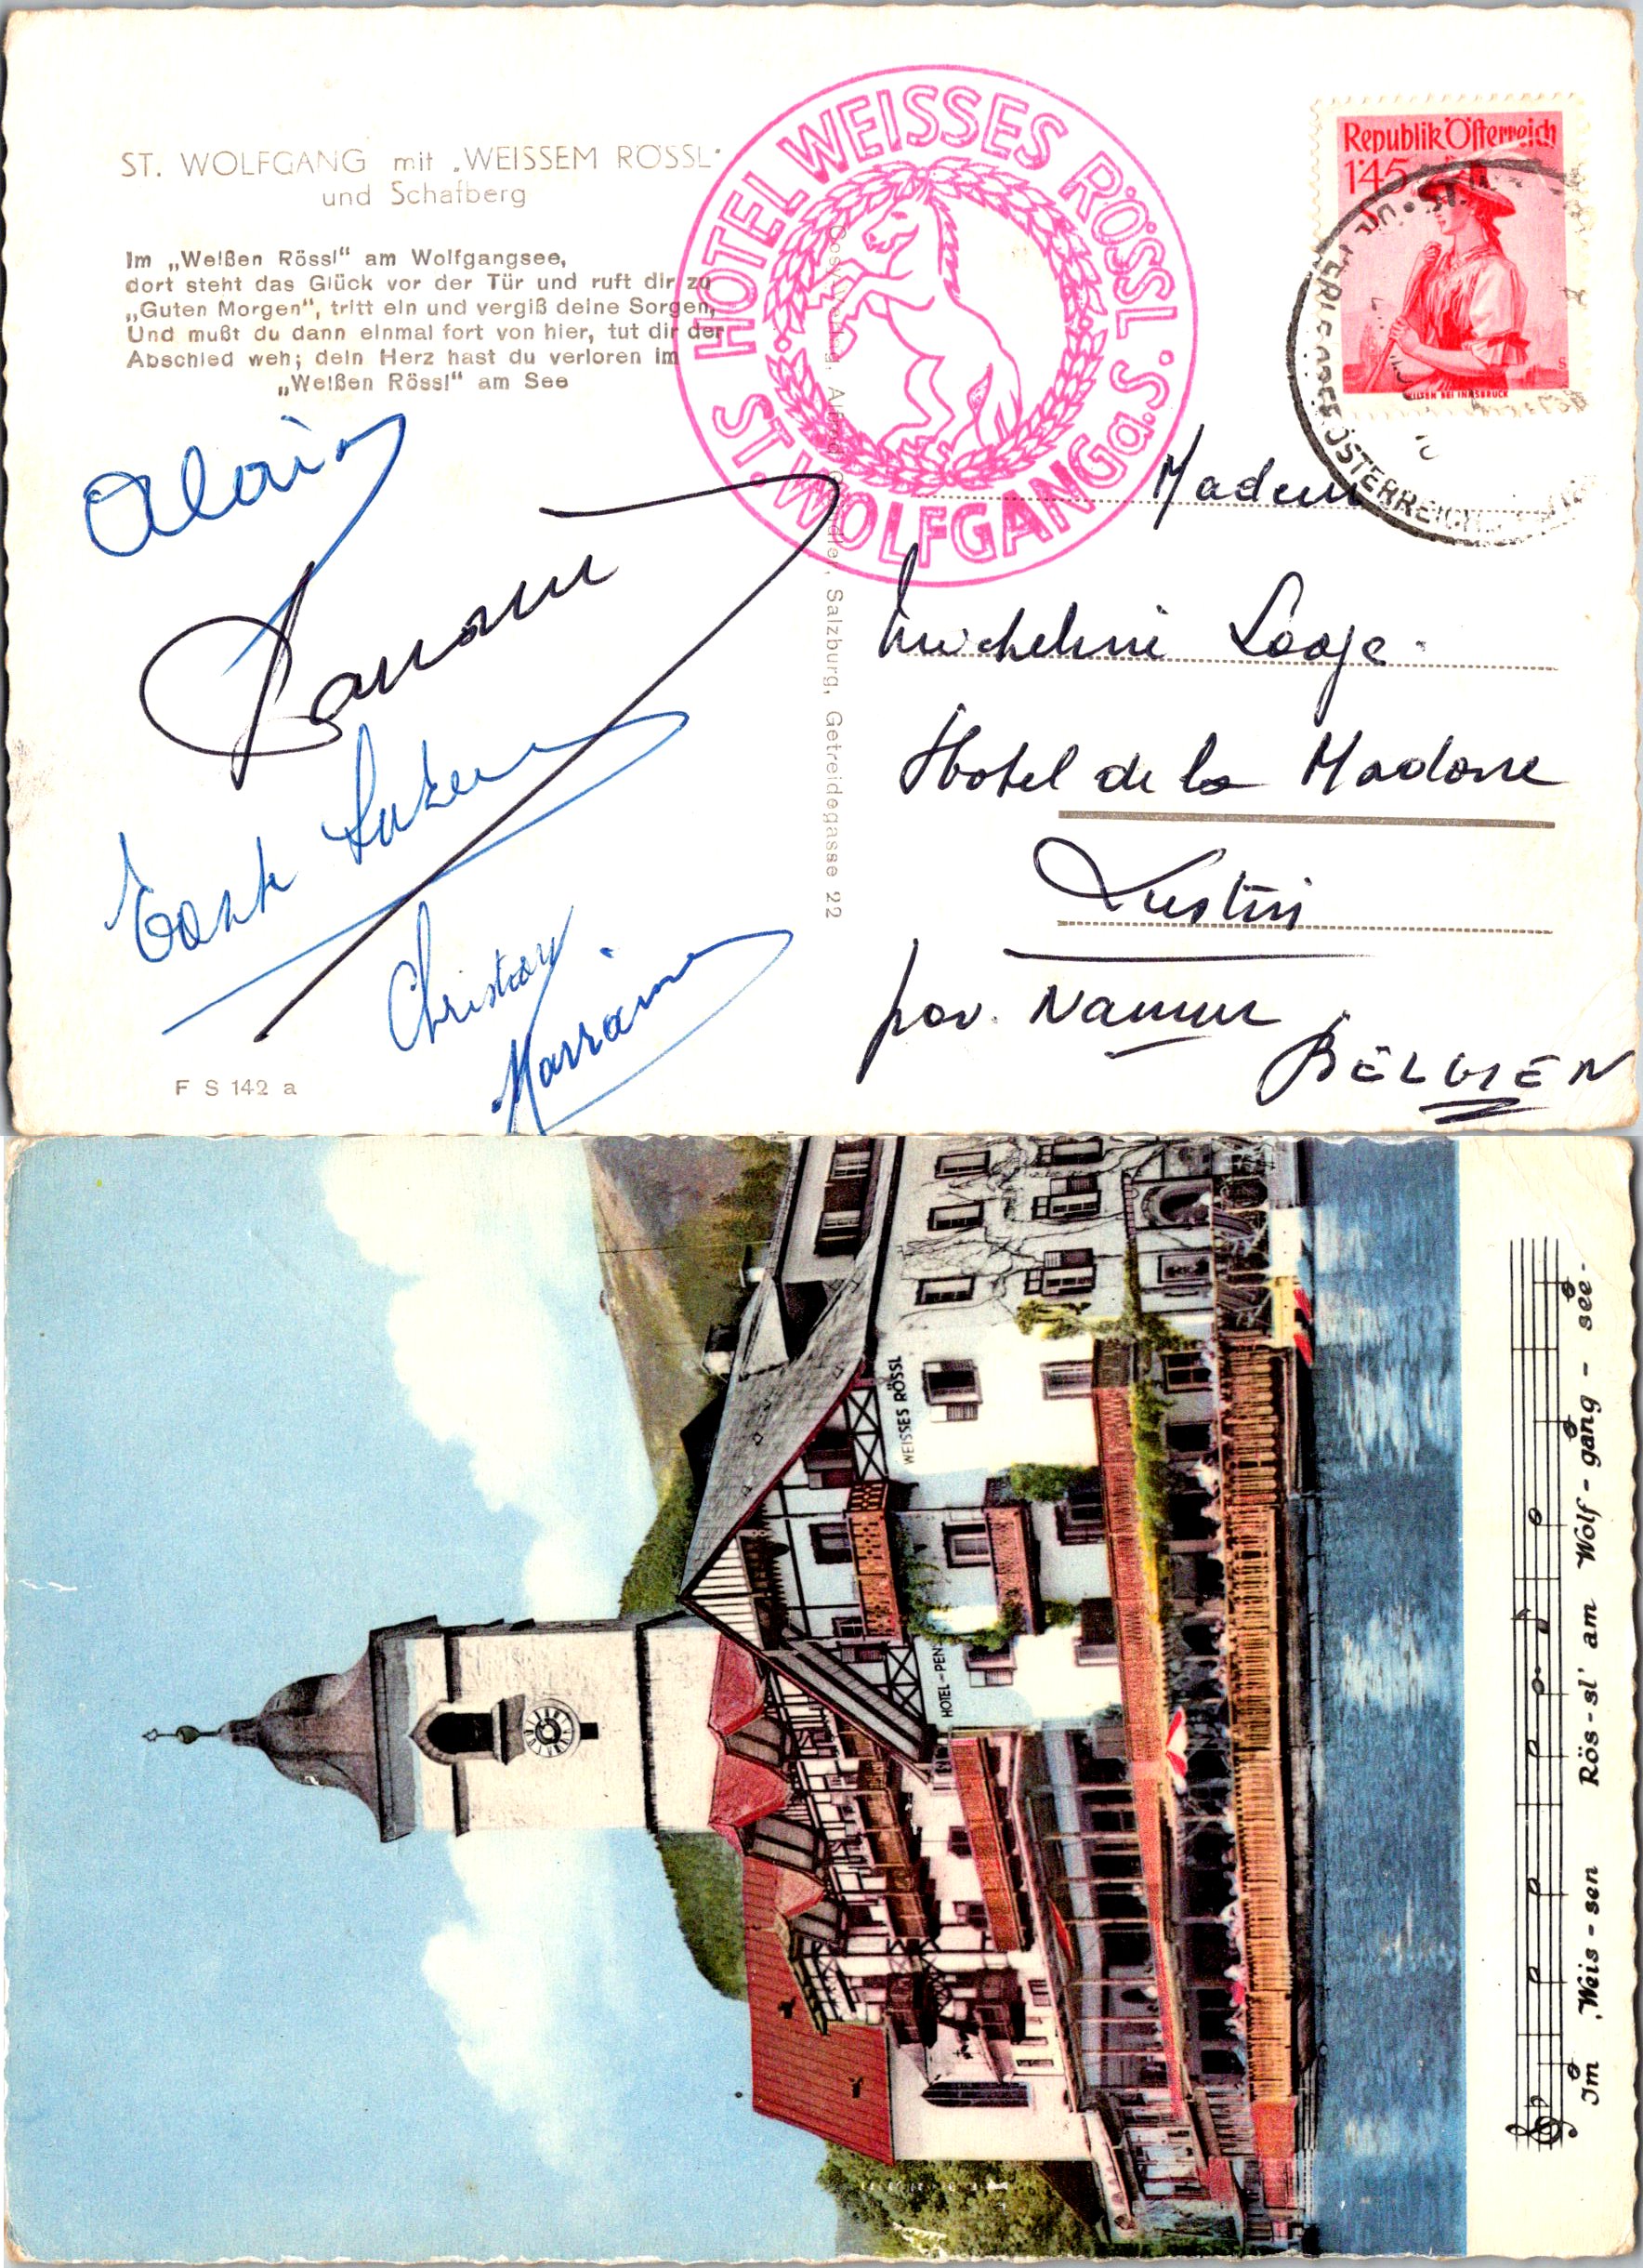 ST. WOLFGANG mit „WEISSEM RÖSSL"
und Schafberg
Im „Weißen Rössl" am Wolfgangsee,
dort steht das Glück vor der Tür und ruft dir zu
„Guten Morgen", tritt ein und vergiß deine Sorgen,
Und mußt du dann einmal fort von hier, tut dir der
Abschied weh; dein Herz hast du verloren im
„Weißen Rössl" am See
HOTEL WEISSES RÖSSL
ST. WOLFGANG a. S.
Republik Österreich
1·45
WILTEN BEI INNSBRUCK
ÖSTERREICH
Cosy-Verlag, Alfred Gründler, Salzburg, Getreidegasse 22
Alain
Christian
Marraine
F S 142 a
Madame
Micheline
Hotel de la Madone
Lustin
Namur
BELGIEN
WEISSES RÖSSL
HOTEL-PEN
Im „Weis-sen Rös-sl' am Wolf-gang-see-